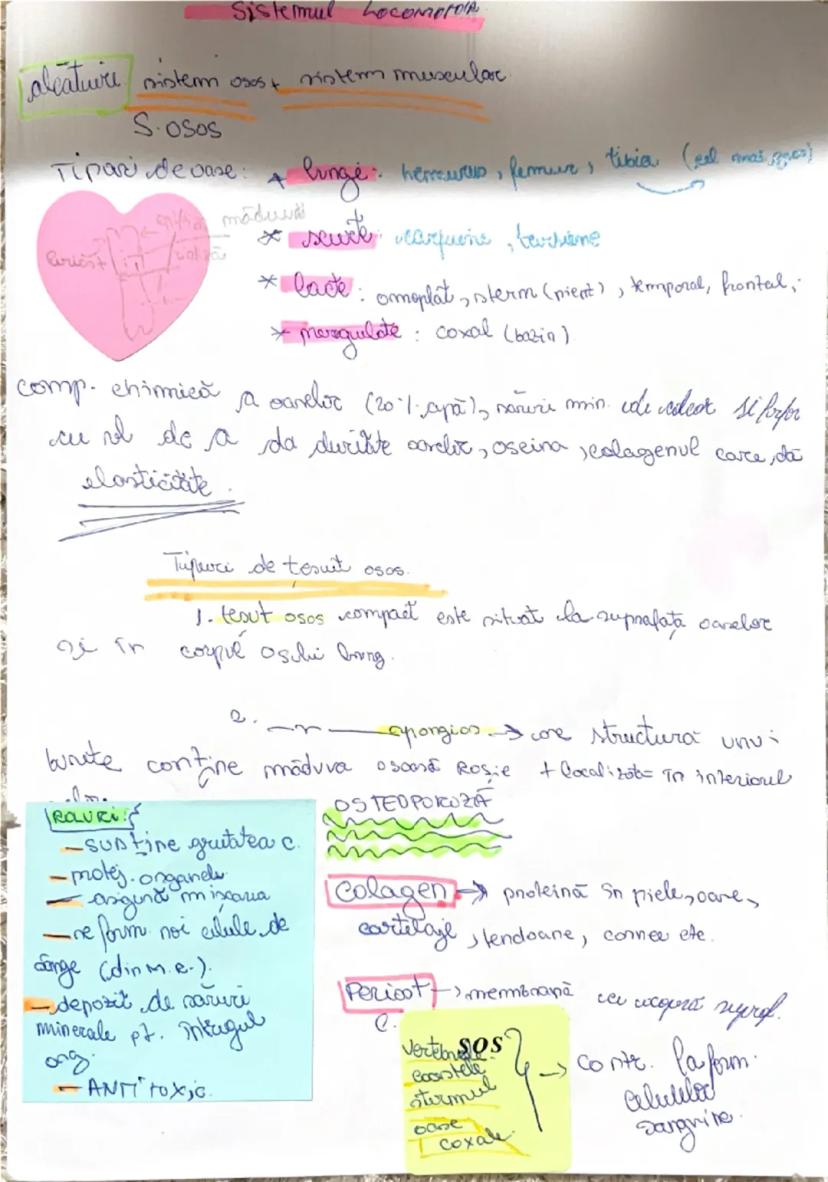 Sistemul Locomotor
alcătuire sistem osos + sistem muscular
S. osos
Tipari de oase: * lungi: humerus, femur, tibia (cel mai gros)
măduvă
periost
* scurte: carpiene, tarsiene
* late: omoplat, stern (piept), temporal, frontal,
* neregulate: coxal (bazin)
comp. chimică a oaselor (20% apă), săruri min. de calciu si fosfor
cu rol de a da duritate oaselor, oseina, colagenul care dă
elasticitate.
Tipuri de țesuit osos.
1. țesut osos compact este situat la suprafața oaselor
si în corpul osului lung.
2. —〃— spongios → are structura unui
burete conține măduva osoasă Roșie + localizat= în interiorul
ROLURI:
OSTEOPOROZĂ
— susține greutatea c.
— protej. organele
— asigură mișcarea
— se form. noi celule de
sânge (din m.r.).
— depozit de săruri
minerale pt. întregul
org.
— ANTITOXIC.
Colagen → proteină în piele, oase,
cartilaje, tendoane, cornee etc.
Periost → membrană ce acoperă supraf.
O.
SOS
Vertebrele
coastele
sternul
oase
coxale
→ contr. la form.
celulelor
sangvine.